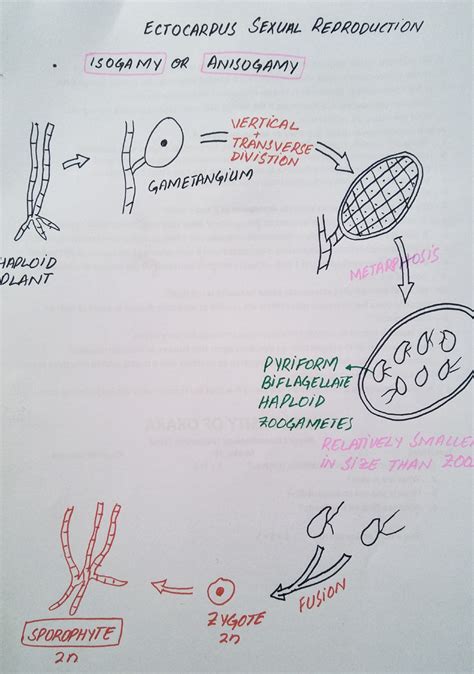 ECTOCARDUS SEXUAL REPRODUCTION
• ISOGAMY OR ANISOGAMY
VERTICAL
+
TRANSVERSE
DIVISTION
GAMETANGIUM
HAPLOID
PLANT
METARPHOSIS
PYRIFORM
BIFLAGELLATE
HAPLOID
ZOOGAMETES
RELATIVELY SMALLER
IN SIZE THAN ZOO
FUSION
ZYGOTE
2n
SPOROPHYTE
2n